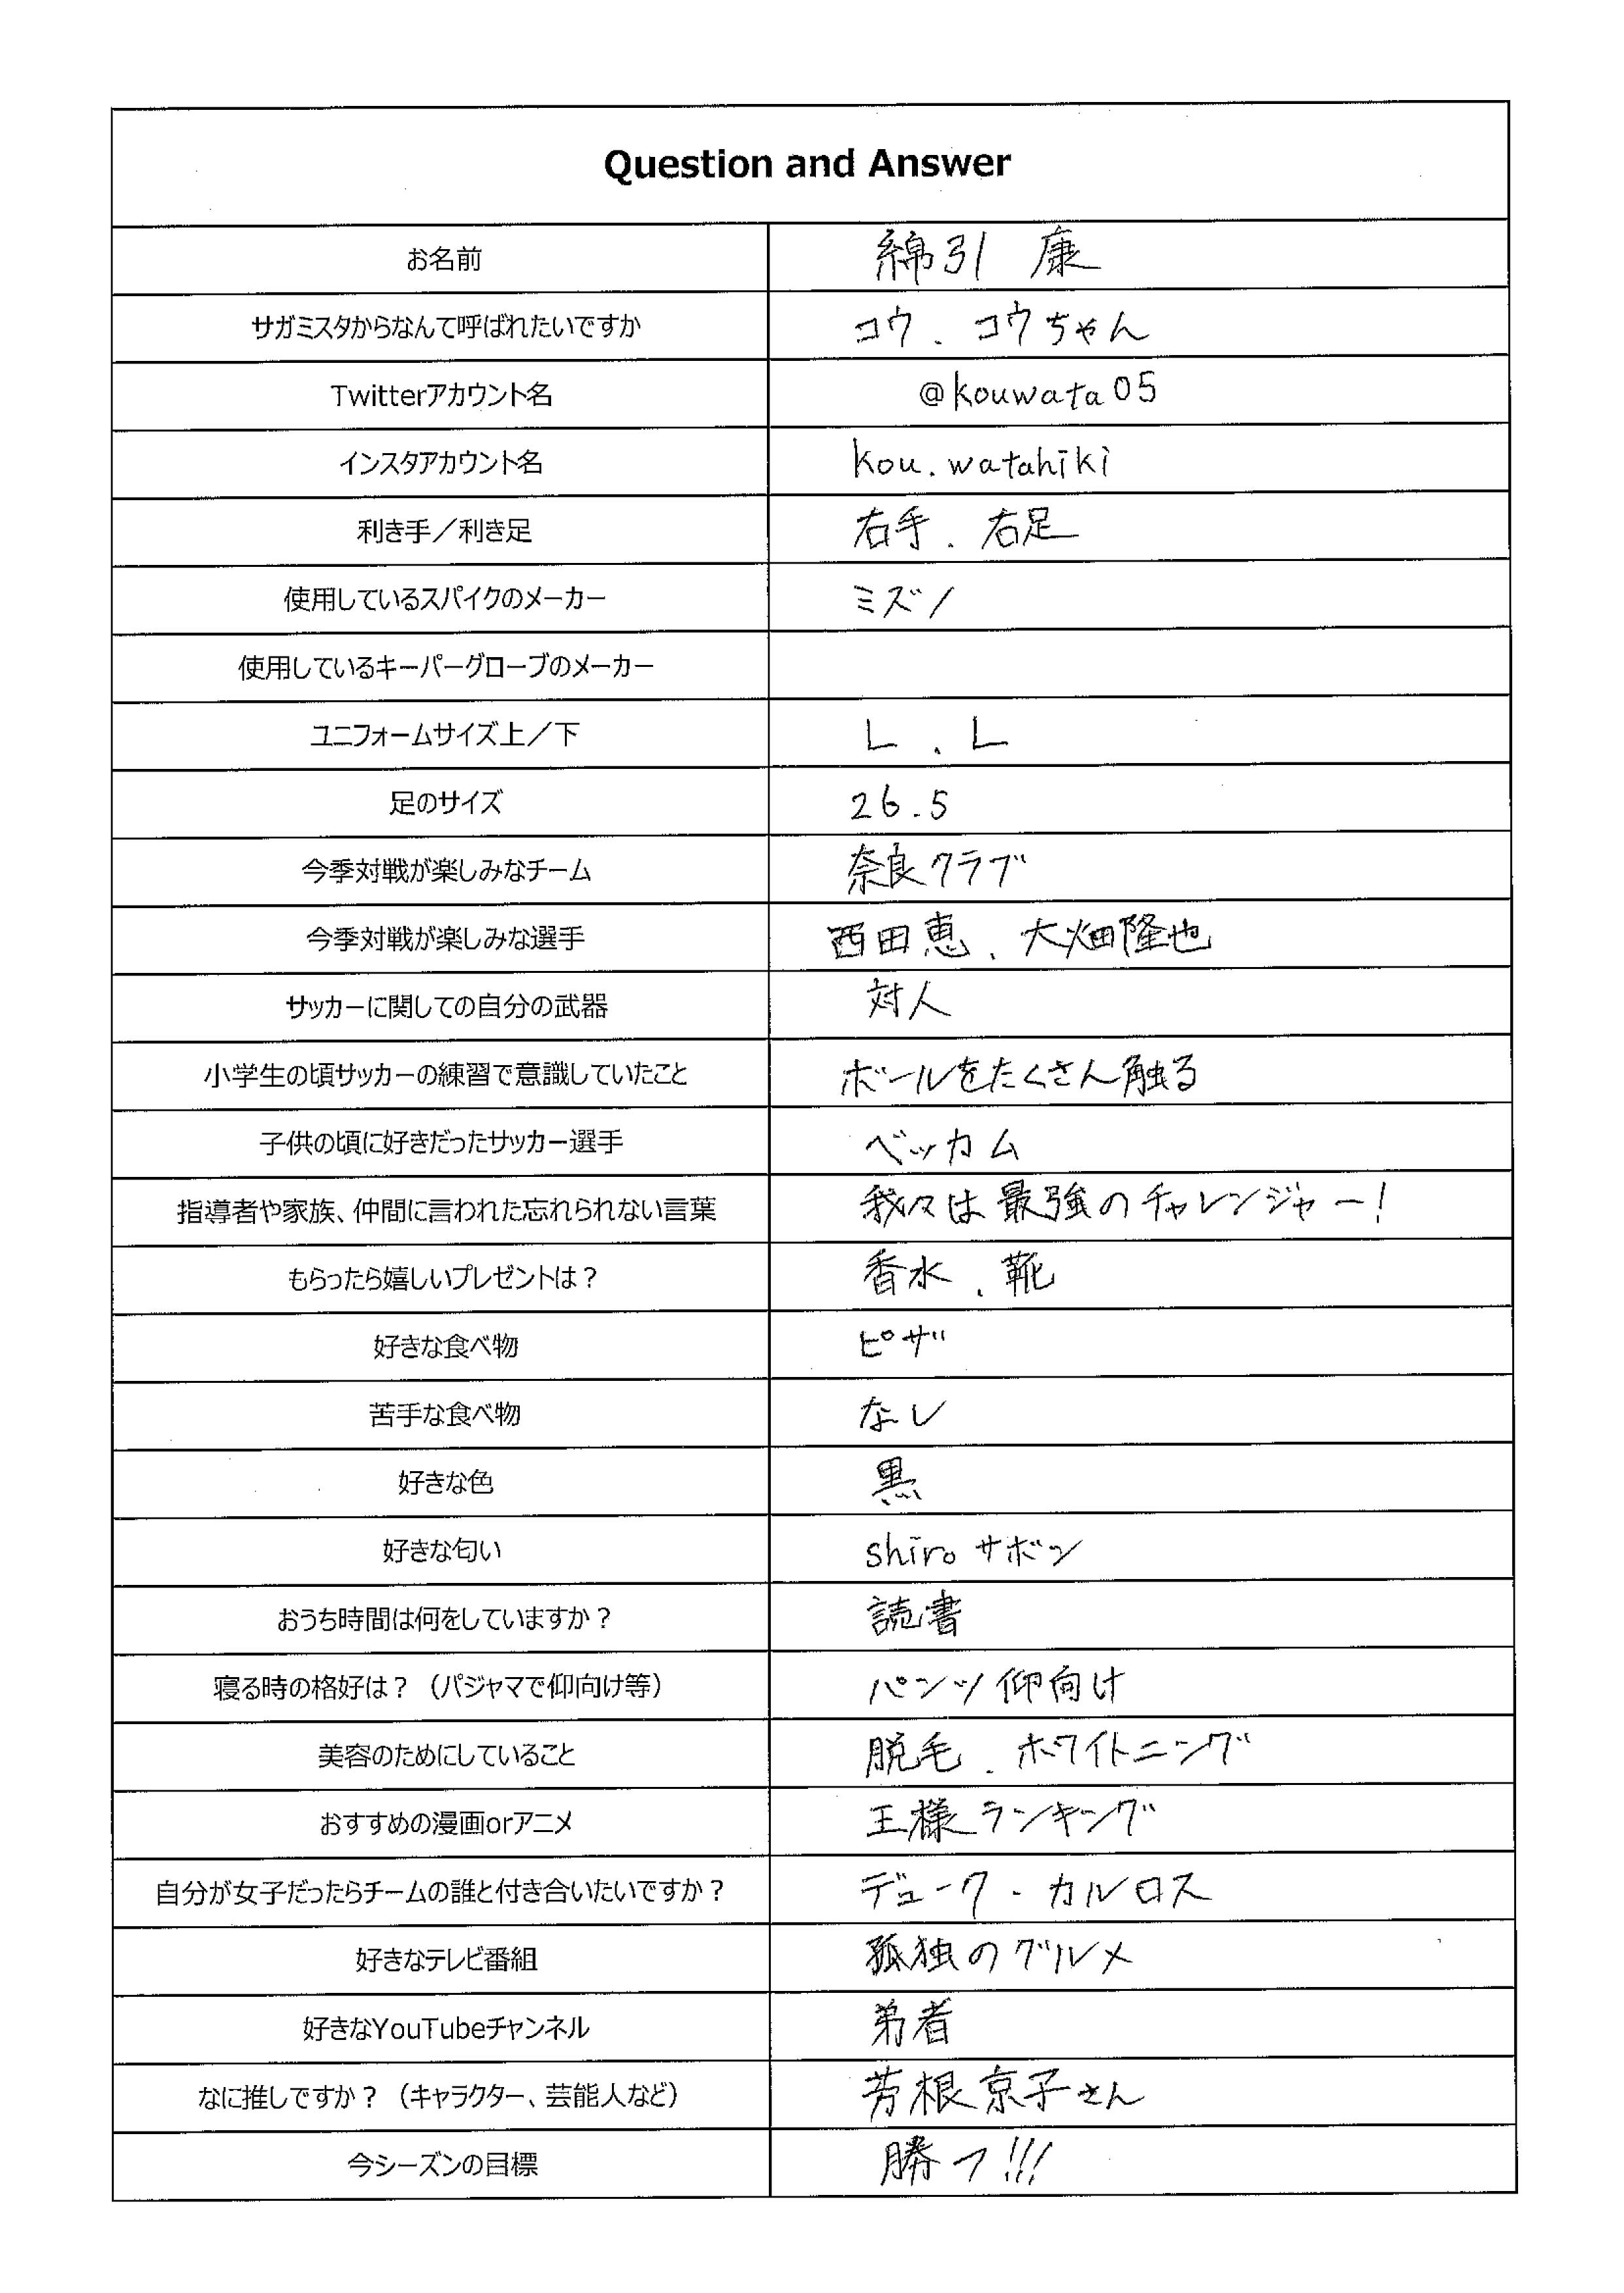 Question and Answer
お名前 綿引 康
サガミスタからなんて呼ばれたいですか コウ、コウちゃん
Twitterアカウント名 @kouwata05
インスタアカウント名 kou.watahiki
利き手／利き足 右手、右足
使用しているスパイクのメーカー ミズノ
使用しているキーパーグローブのメーカー
ユニフォームサイズ上／下 L、L
足のサイズ 26.5
今季対戦が楽しみなチーム 奈良クラブ
今季対戦が楽しみな選手 西田恵、大畑隆也
サッカーに関しての自分の武器 対人
小学生の頃サッカーの練習で意識していたこと ボールをたくさん触る
子供の頃に好きだったサッカー選手 ベッカム
指導者や家族、仲間に言われた忘れられない言葉 我々は最強のチャレンジャー！
もらったら嬉しいプレゼントは？ 香水、靴
好きな食べ物 ピザ
苦手な食べ物 なし
好きな色 黒
好きな匂い shiro サボン
おうち時間は何をしていますか？ 読書
寝る時の格好は？（パジャマで仰向け等） パンツ仰向け
美容のためにしていること 脱毛、ホワイトニング
おすすめの漫画orアニメ 王様ランキング
自分が女子だったらチームの誰と付き合いたいですか？ デューク・カルロス
好きなテレビ番組 孤独のグルメ
好きなYouTubeチャンネル 弟者
なに推しですか？（キャラクター、芸能人など） 芳根京子さん
今シーズンの目標 勝つ!!!